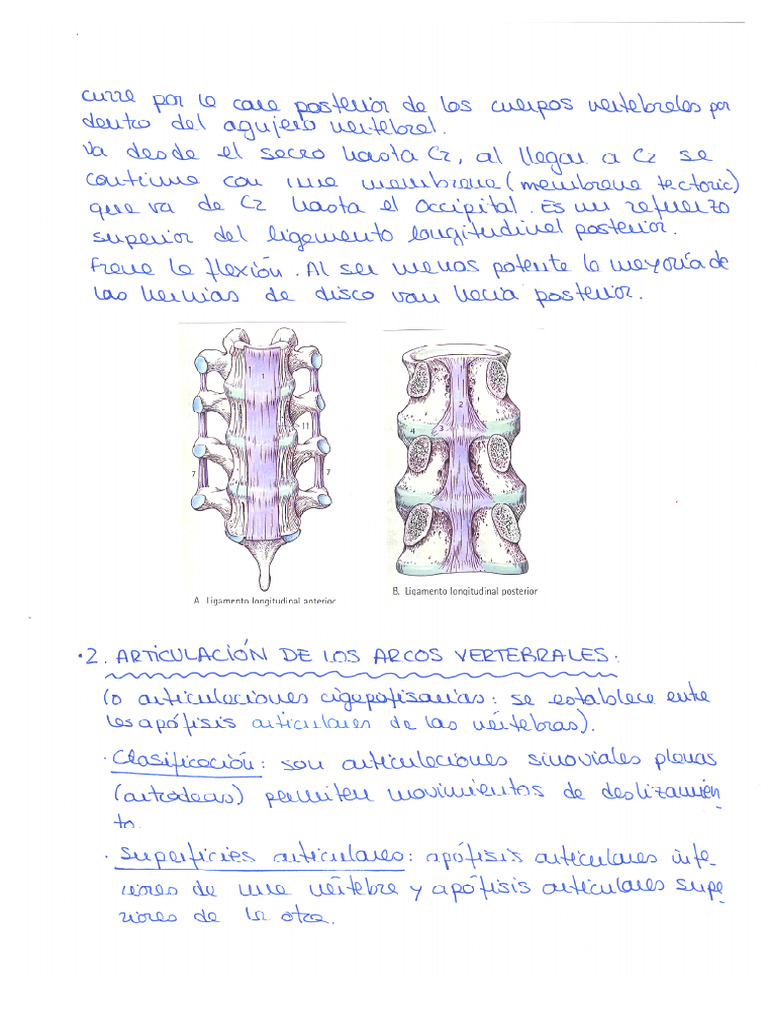 curre por la cara posterior de los cuerpos vertebrales por
dentro del agujero vertebral.
Va desde el sacro hasta C2, al llegar a C2 se
continua con una membrana (membrana tectoric)
que va de C2 hasta el occipital. Es un refuerzo
superior del ligamento longitudinal posterior.
Frena la flexión. Al ser menos potente la mayoría de
las hernias de disco van hacia posterior.
1
11
7
7
A. Ligamento longitudinal anterior
2
4
3
B. Ligamento longitudinal posterior
·2. ARTICULACIÓN DE LOS ARCOS VERTEBRALES:
(o articulaciones cigapofisarias: se establece entre
las apófisis articulares de las vértebras).
· Clasificación: son articulaciones sinoviales planas
(artrodeas) permiten movimientos de deslizamien
to.
· Superficies articulares: apófisis articulares infe
riores de una vértebra y apófisis articulares supe
riores de la otra.